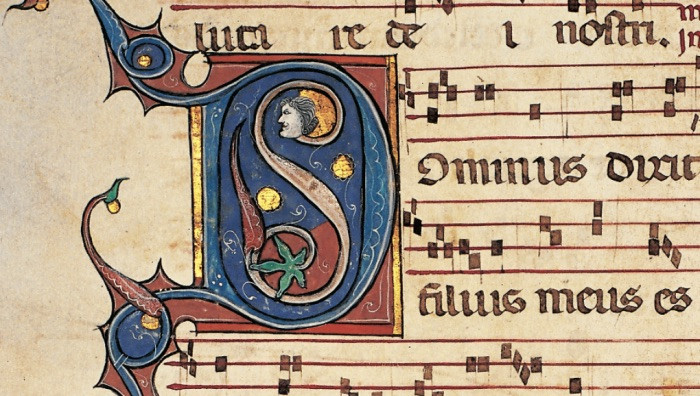 luta re de i nostri.
Dominus dixit
filius meus es